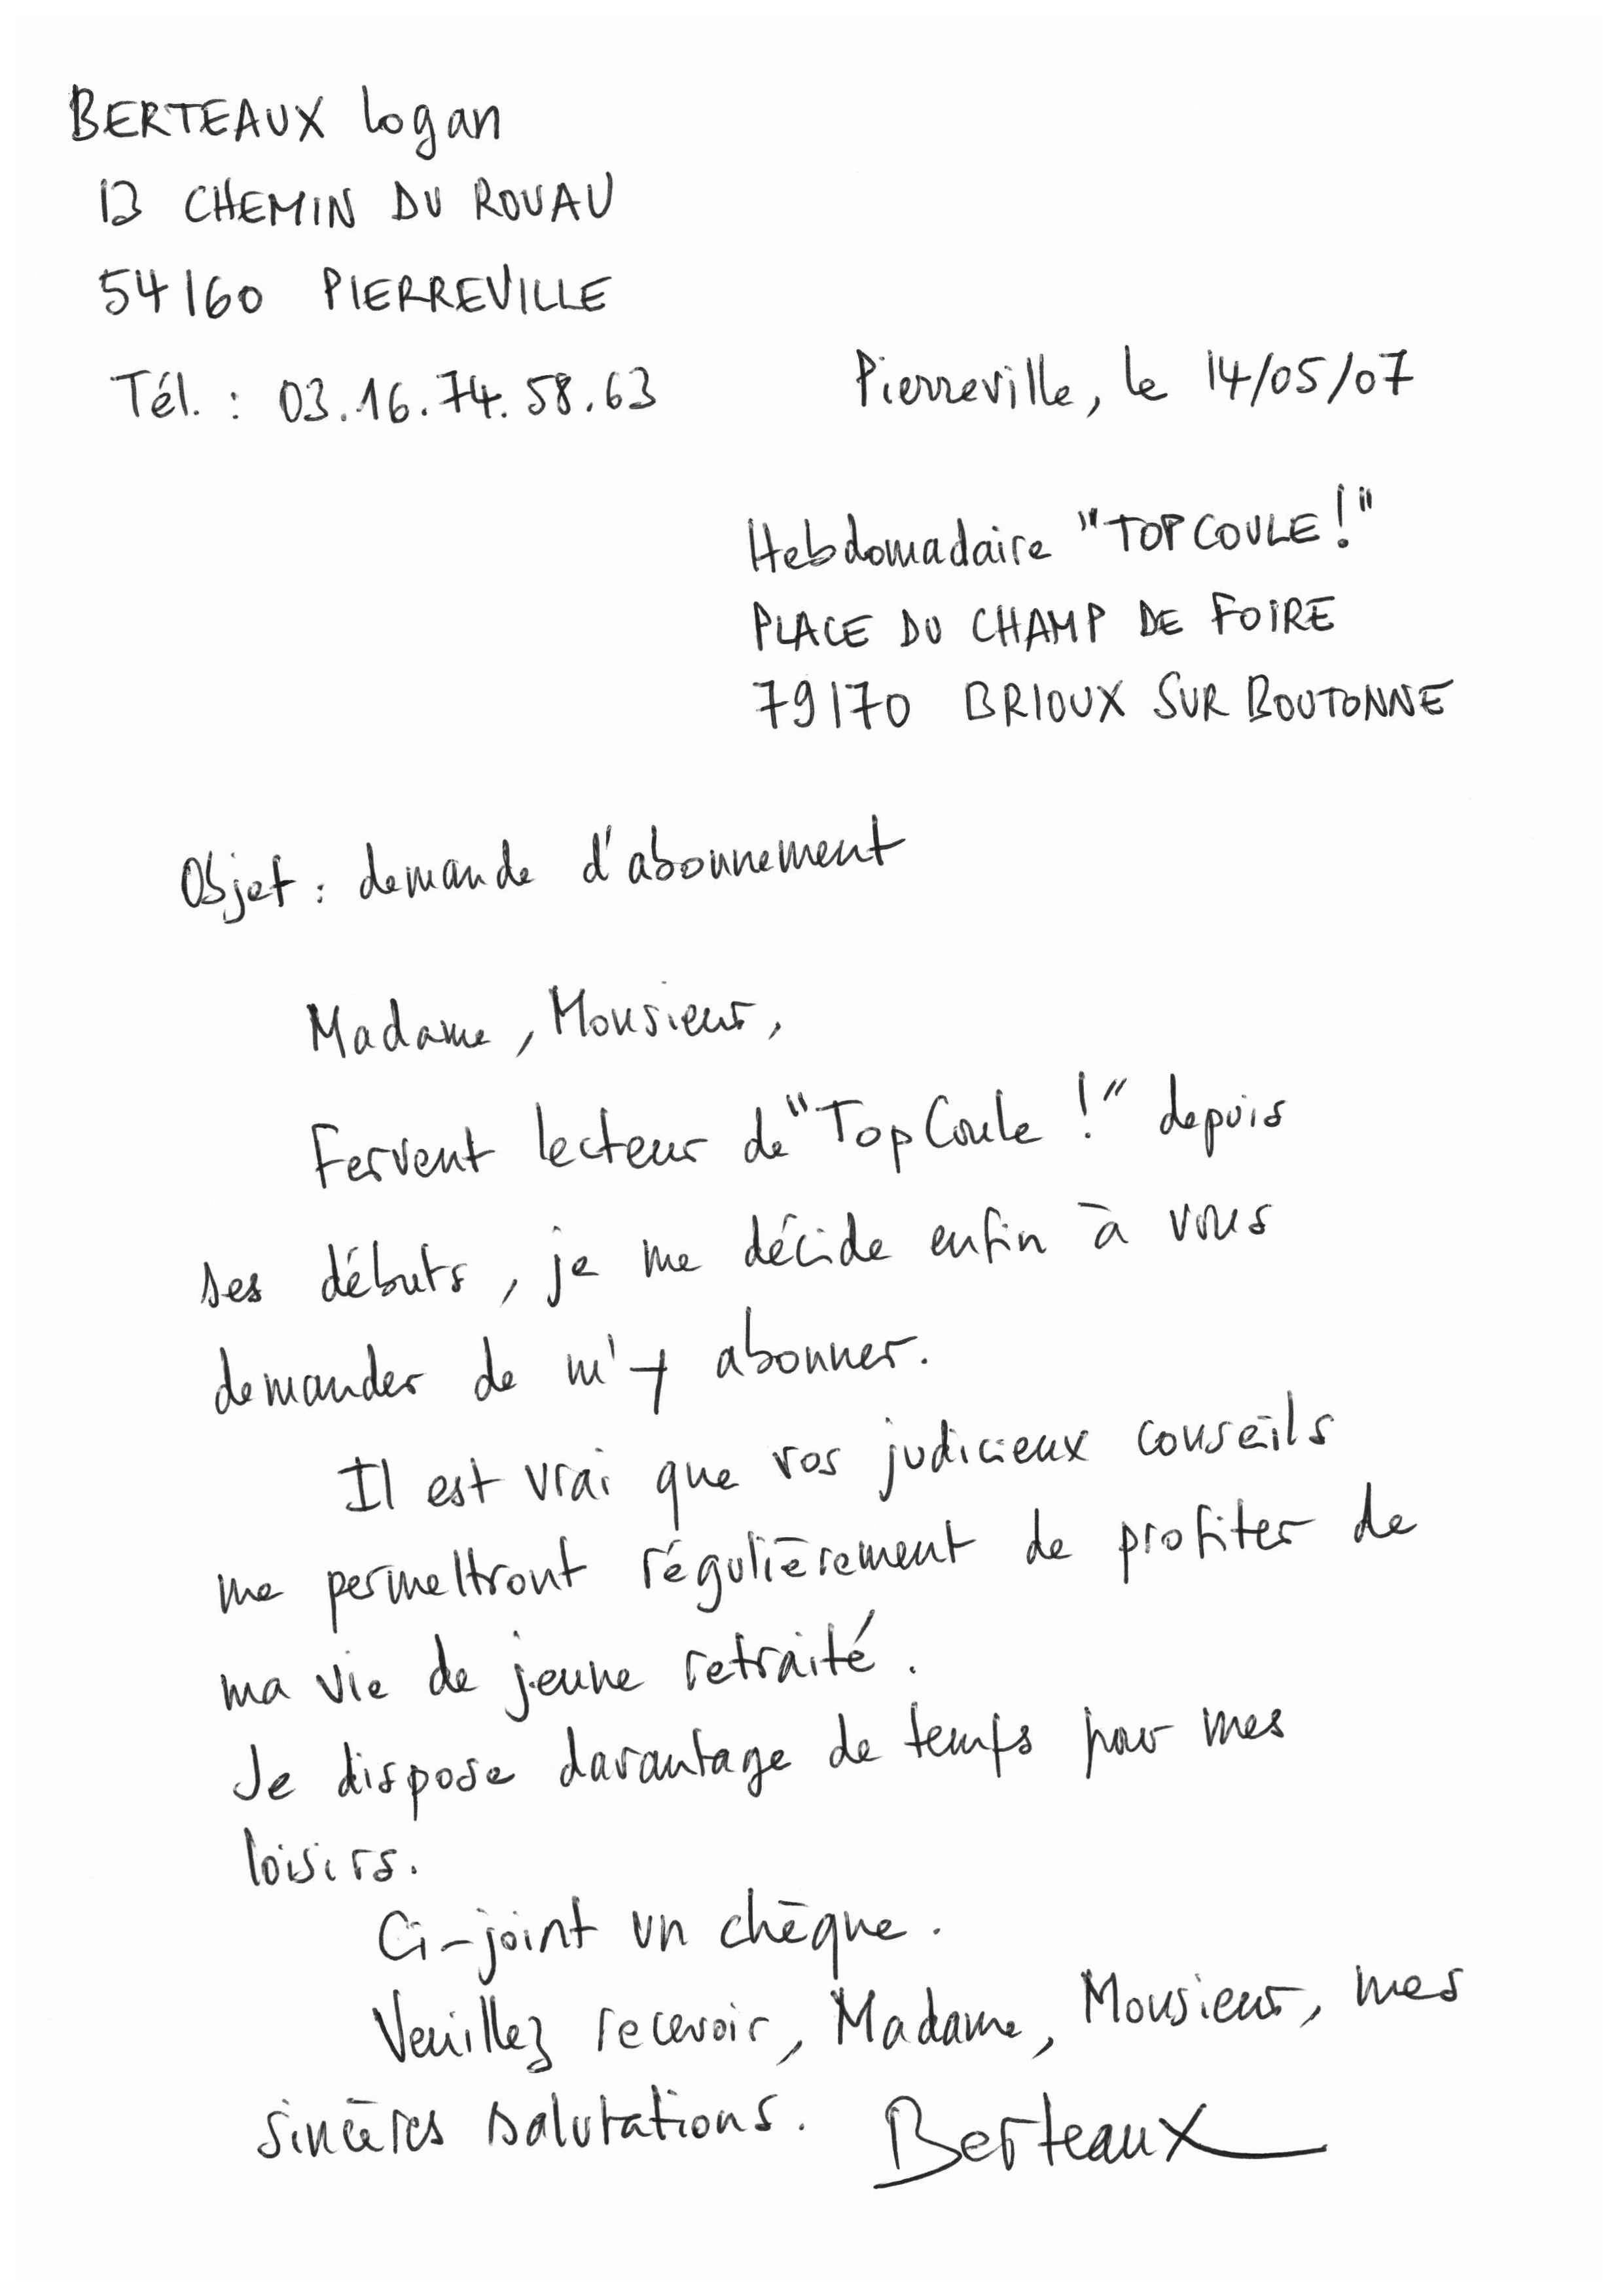 BERTEAUX Logan
13 CHEMIN DU ROUAU
54160 PIERREVILLE
Tél. : 03.16.74.58.63
Pierreville, le 14/05/07
Hebdomadaire "TOPCOULE!"
PLACE DU CHAMP DE FOIRE
79170 BRIOUX SUR BOUTONNE
Objet : demande d'abonnement
Madame, Monsieur,
Fervent lecteur de "TopCoule !" depuis
ses débuts, je me décide enfin à vous
demander de m'y abonner.
Il est vrai que vos judicieux conseils
me permettront régulièrement de profiter de
ma vie de jeune retraité.
Je dispose davantage de temps pour mes
loisirs.
Ci-joint un chèque.
Veuillez recevoir, Madame, Monsieur, mes
sincères salutations. Berteaux